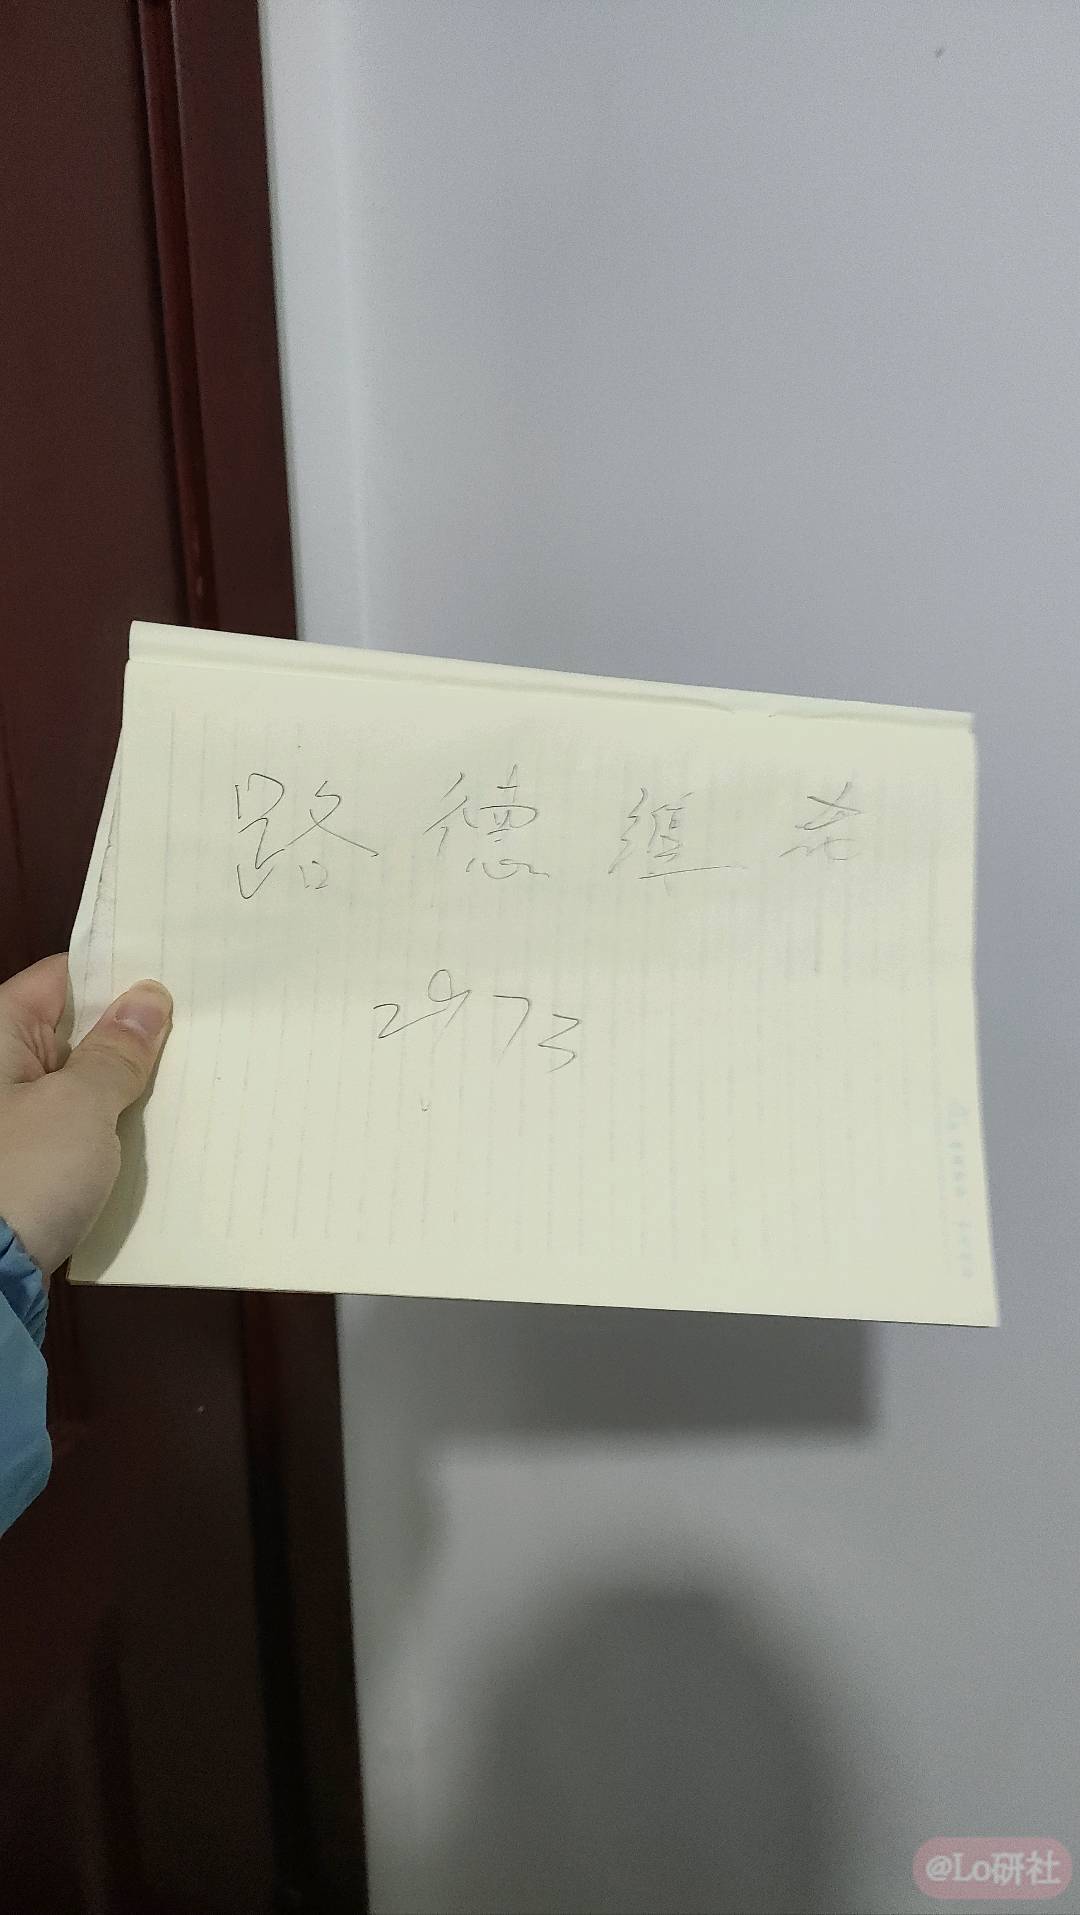 路德維希
2973
@Lo研社